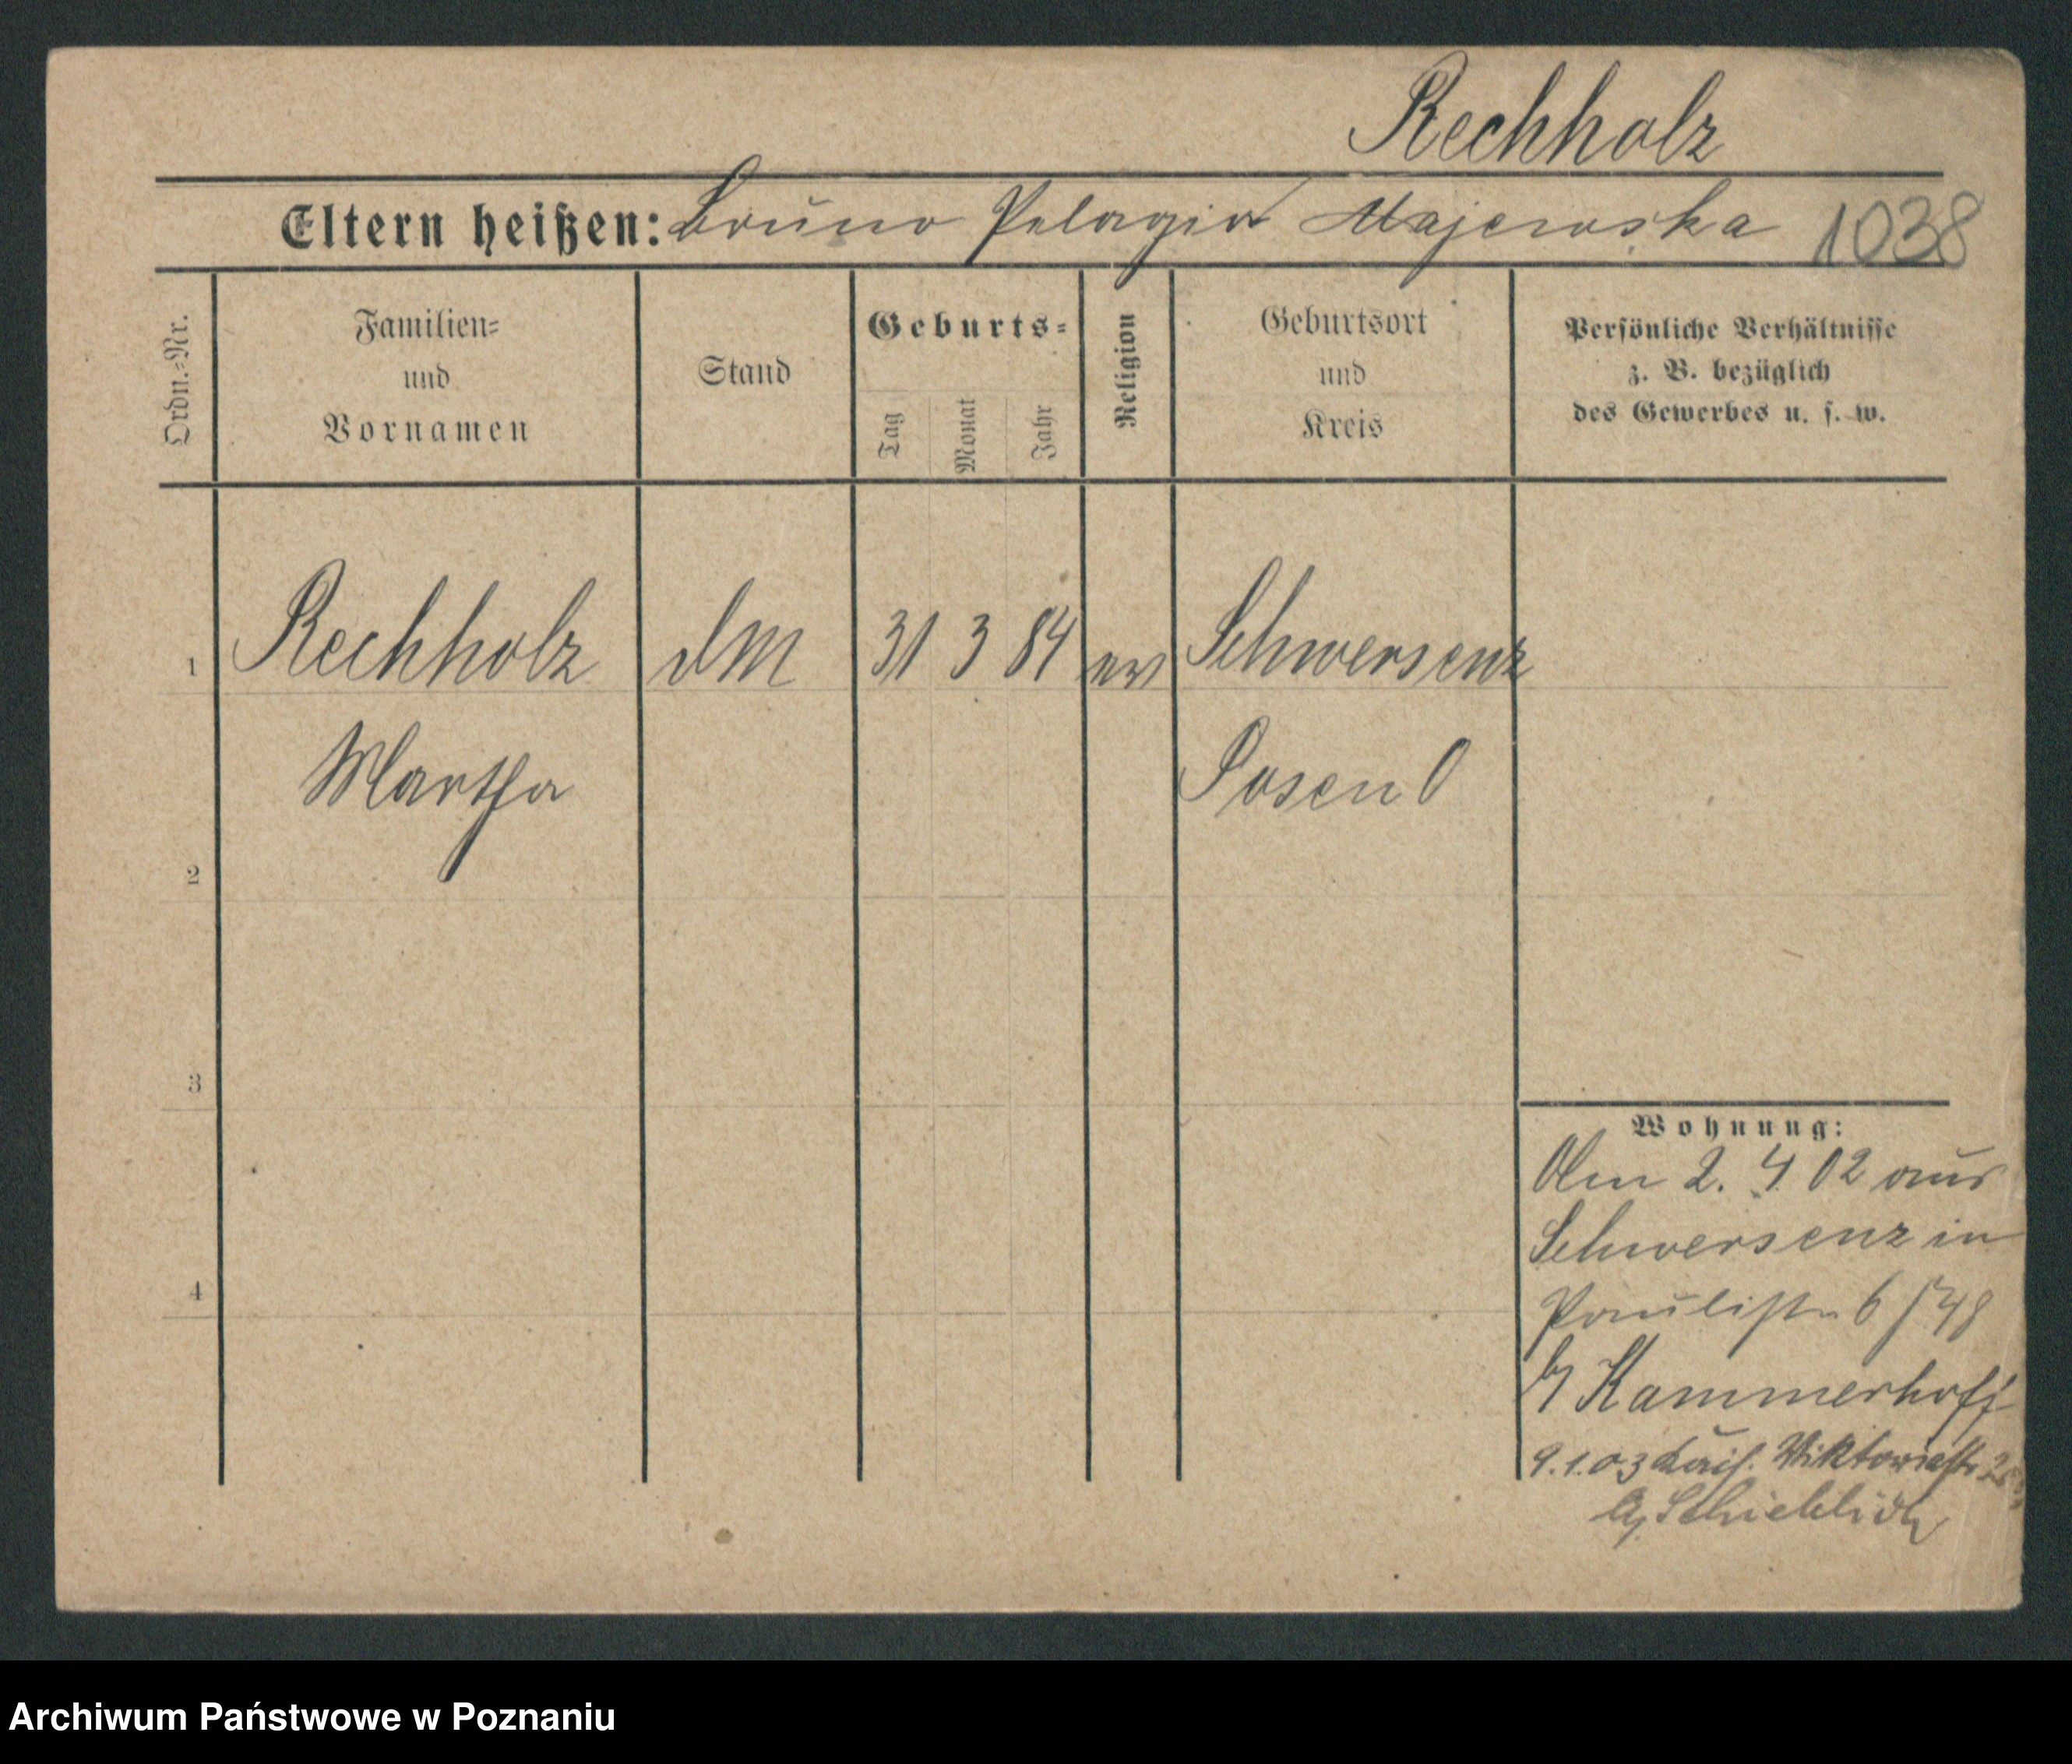 Rechholz
Eltern heißen: Bruno Pelagia Majewska 1038
Ordn.=Nr.
Familien=
und
Vornamen
Stand
Geburts=
Tag
Monat
Jahr
Religion
Geburtsort
und
Kreis
Persönliche Verhältnisse
z. B. bezüglich
des Gewerbes u. s. w.
1 Rechholz dM 31 3 84 ev Schwersenz
Martha Posen O
2
3
4
Wohnung:
Am 2. 4 02 aus
Schwersenz in
Paulistr 6
b/ Kammerhoff
9.1.03 Kais. Viktoriastr
b/ Schieblich
Archiwum Państwowe w Poznaniu